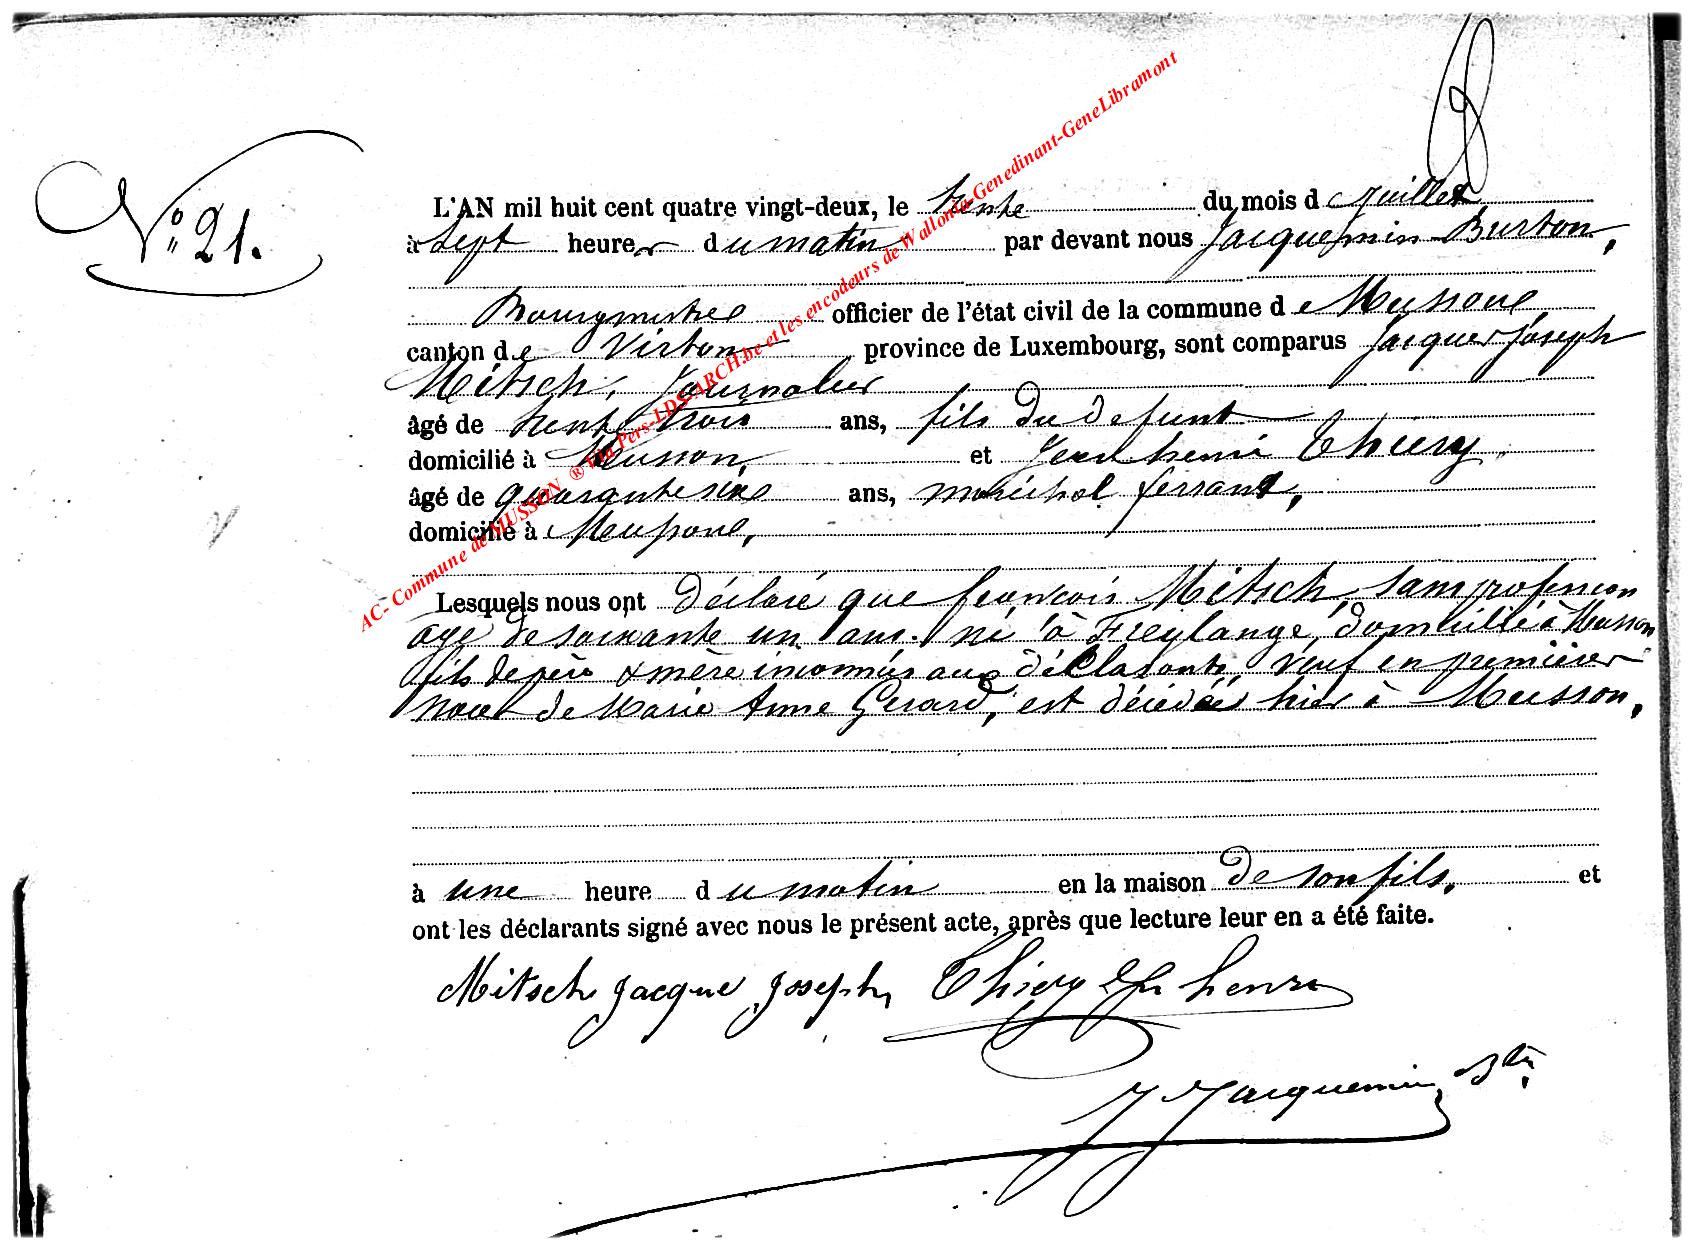 N° 21.
L'AN mil huit cent quatre vingt-deux, le trente du mois d e Juillet
à sept heures d u matin par devant nous Jacquemin Burton,
Bourgmestre officier de l'état civil de la commune d e Musson
canton de Virton province de Luxembourg, sont comparus Jacques Joseph
Mitsch, Journalier
âgé de trente trois ans, fils du défunt
domicilié à Musson, et Jean henri Thiery
âgé de quarante six ans, maréchal ferrant,
domicilié à Musson,
Lesquels nous ont déclaré que françois Mitsch, sans profession
âgé de soixante un ans. né à Freylange, domicilié à Musson
fils de père & mère inconnus aux déclarants, veuf en premières
noces de Marie Anne Gerard, est décédé hier à Musson,
à une heure d u matin en la maison de son fils, et
ont les déclarants signé avec nous le présent acte, après que lecture leur en a été faite.
Mitsch Jacque Joseph, Thiery henri
J Jacquemin
AC- Commune de MUSSON ® Via Pers-LDS-ARCH.be et les encodeurs de Wallonia-Genedinant-GeneLibramont